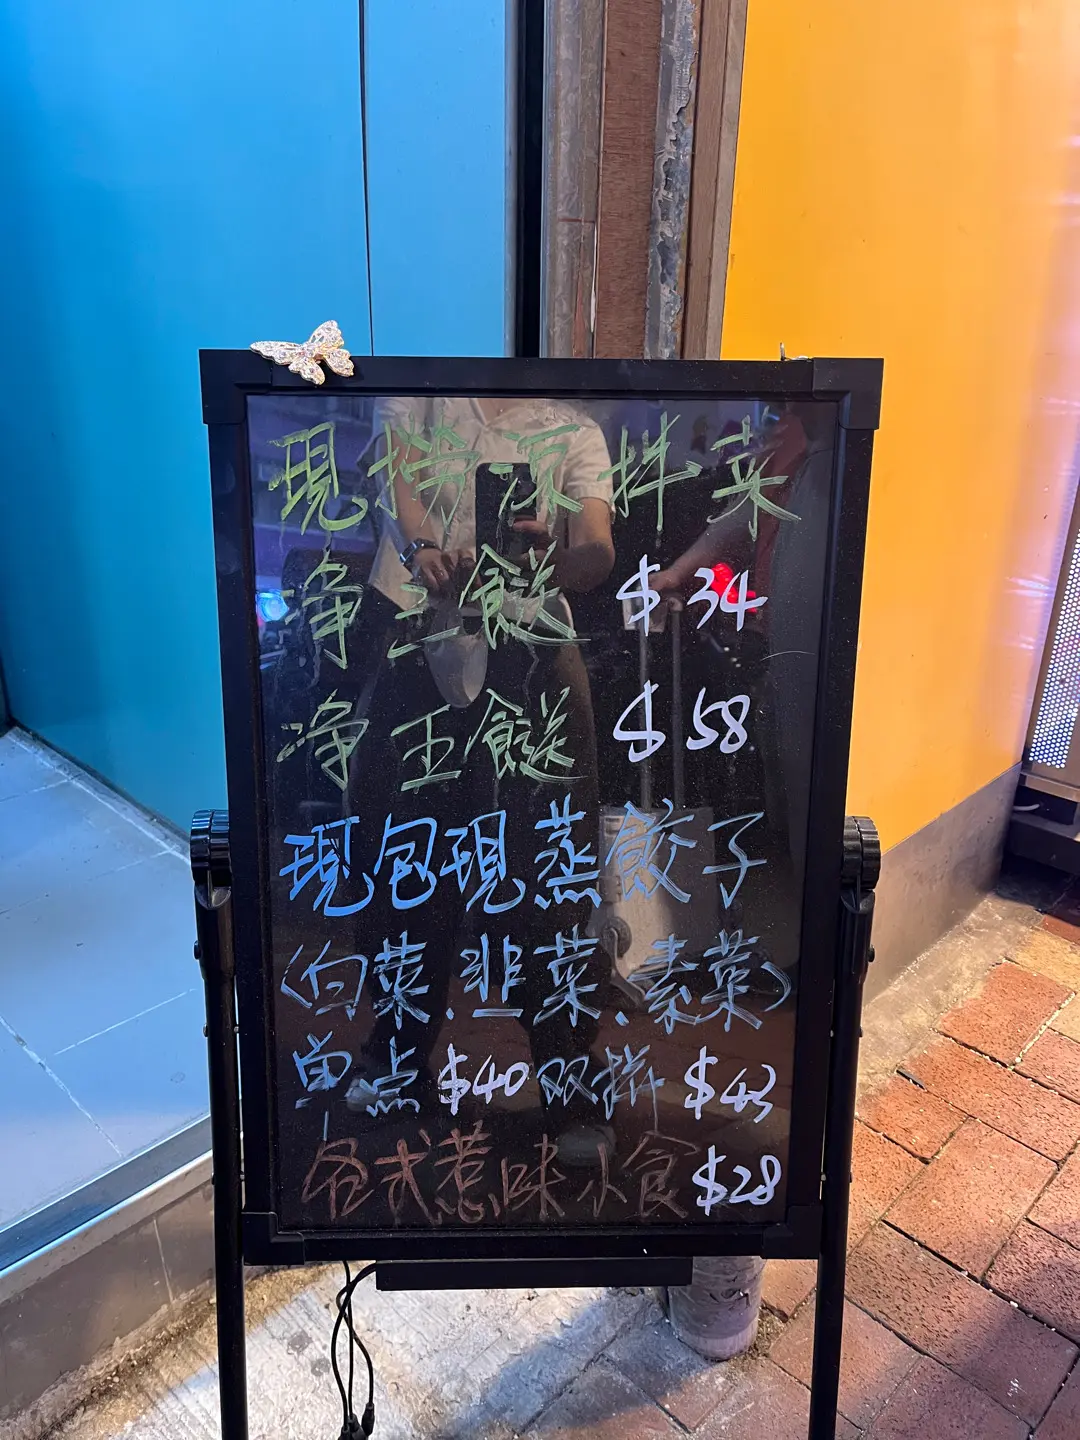 現撈凉拌菜
净三餸 $34
净五餸 $58
現包現蒸餃子
(白菜.韭菜.素菜)
单点 $40 双拼 $43
各式惹味小食 $28